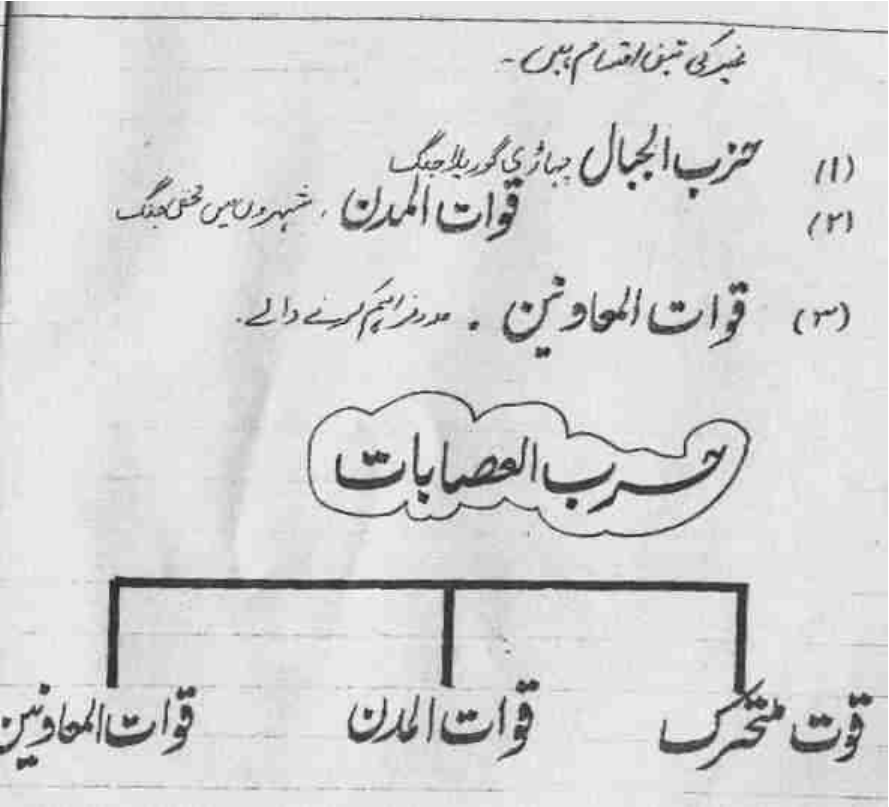 کی تین اقسام ہیں۔
(۱) حزب الجبال پہاڑی گوریلا جنگ
(۲) قوات المدن ۔ شہروں میں جنگ
(۳) قوات المعاونین ۔ مدد فراہم کرنے والے۔
حرب العصابات
قوت متحرک قوات المدن قوات المعاونین